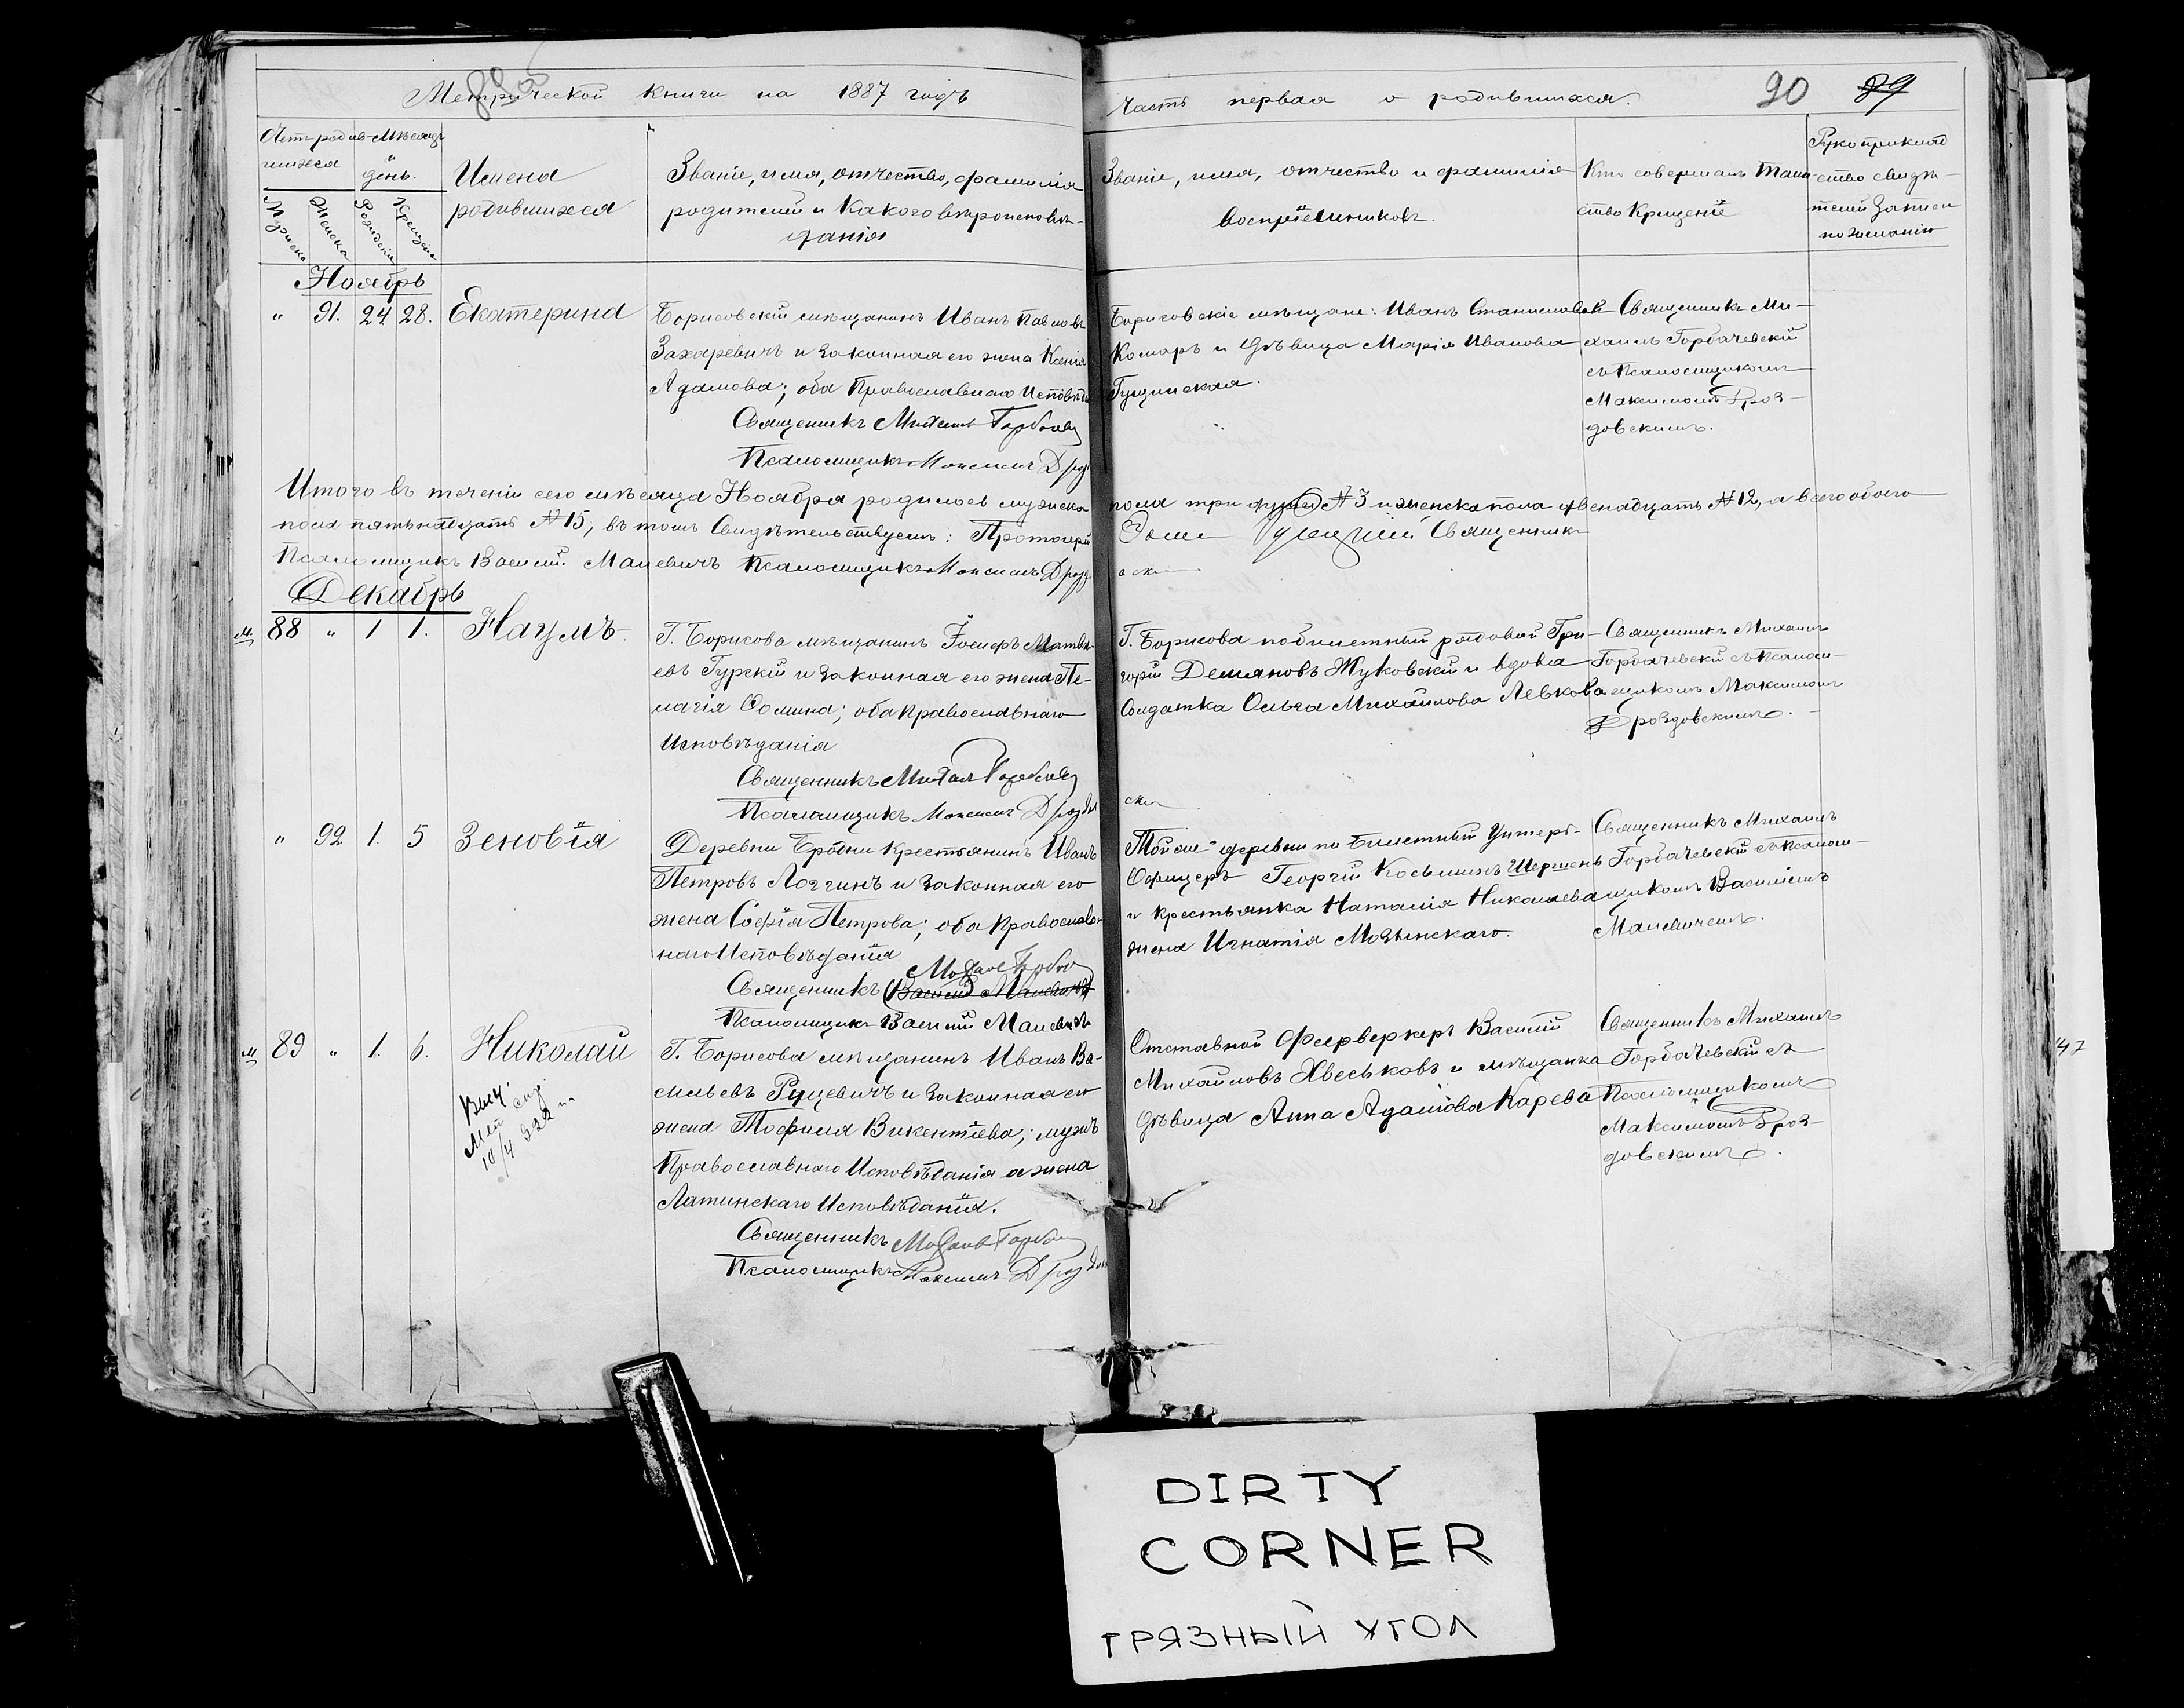 Метрической книги на 1887 годъ
Часть первая о родившихся.
90 89
Счетъ родив-
шихся
Мѣсяцъ
и
день.
Имена
родившихся
Званіе, имя, отчество, фамилія
родителей и какого вѣроисповѣ-
данія
Званіе, имя, отчество и фамилія
воспріемниковъ.
Кто совершалъ Таин-
ство Крещенія
Рукоприклад
ство свидѣ-
телей записи
по желанію
Мужеска
Женска
Рожденія
Крещенія
Ноябрь
" 91. 24 28. Екатерина
Борисовскій мѣщанинъ Иванъ Павловъ
Захаревичъ и законная его жена Ксенія
Адамова; оба Православнаго Исповѣд
Священникъ Михаилъ Горбачев
Псаломщикъ Максимъ Дроз
Борисовскіе мѣщане: Иванъ Станиславовъ
Комаръ и дѣвица Марія Иванова
Гущинская.
Священникъ Ми-
хаилъ Горбачевскій
съ Псаломщикомъ
Максимомъ Дроз-
довскимъ.
Итого въ теченіи сего мѣсяца Ноября родилось мужеска пола три № 3 и женска пола двенадцать № 12, а всего обоего
пола пятьнадцать № 15, въ томъ Свидѣтельствуемъ: Протоіерей Священникъ
Псаломщикъ Василій Малевичъ Псаломщикъ Максимъ Дроздовски
Декабрь
м. 88 " 1 1. Наумъ
Г. Борисова мѣщанинъ Іосифъ Матвѣ-
евъ Гурскій и законная его жена Пе-
лагія Фомина; оба Православнаго
Исповѣданія
Священникъ Михаил Горбачев
Псаломщикъ Максимъ Дроздов
ски
Г. Борисова побилетный рядовой Гри-
горій Демяновъ Жуковскій и вдова
Солдатка Ольга Михайлова Левкова
Священникъ Михаилъ
Горбачевскій съ Псалом-
щикомъ Максимомъ
Дроздовскимъ.
" 92 1. 5 Зеновія
Деревни Бродни крестьянинъ Иванъ
Петровъ Логгинъ и законная его
жена Софія Петрова; оба Православ-
наго Исповѣданія
Михаил Горбач
Священникъ (Василій Малевичъ)
Псаломщикъ Василій Малевичъ
Той же деревни по билетный Унтеръ-
Офицеръ Георгій Косьминъ Шершень
и крестьянка Наталія Николаева
жена Игнатія Мозынскаго.
Священникъ Михаилъ
Горбачевскій съ Псалом-
щикомъ Василіемъ
Малевичемъ.
м 89 " 1. 6. Николай
10/4 922 г.
Г. Борисова мѣщанинъ Иванъ Ва-
сильевъ Руцевичъ и законная его
жена Тофиля Викентіева; мужъ
Православнаго Исповѣданія а жена
Латинскаго Исповѣданія.
Священникъ Михаил Горбач
Псаломщикъ Максимъ Дроздов
Отставной Феерверкеръ Василій
Михайловъ Хвеськовъ и мѣщанка
дѣвица Анна Адамова Карева
Священникъ Михаилъ
Горбачевскій съ
Псаломщикомъ
Максимомъ Дроз-
довскимъ.
47
DIRTY
CORNER
ГРЯЗНЫЙ УГОЛ